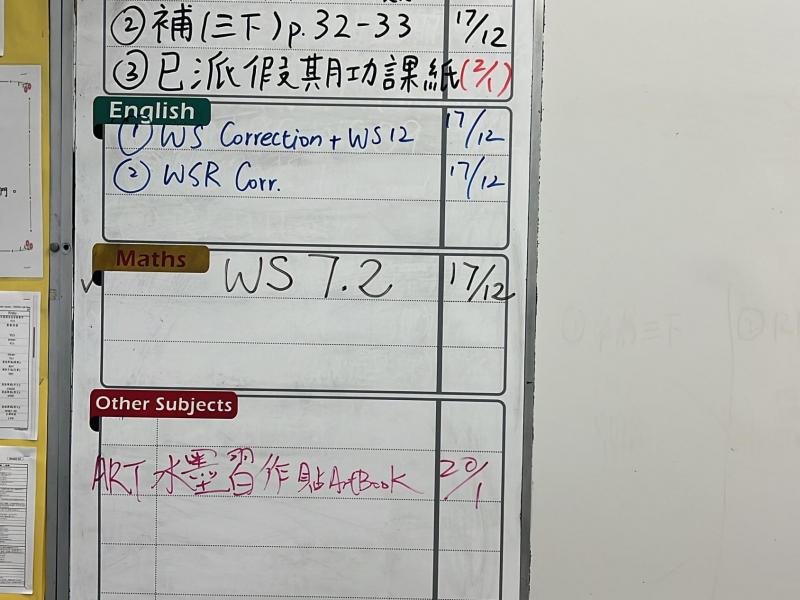 ② 補(三下) p.32-33 17/12
③ 已派假期功課紙 (2/1)
English
① WS Correction + WS 12 17/12
② WSR Corr. 17/12
Maths
WS 7.2 17/12
Other Subjects
ART 水墨習作貼ArtBook 20/1